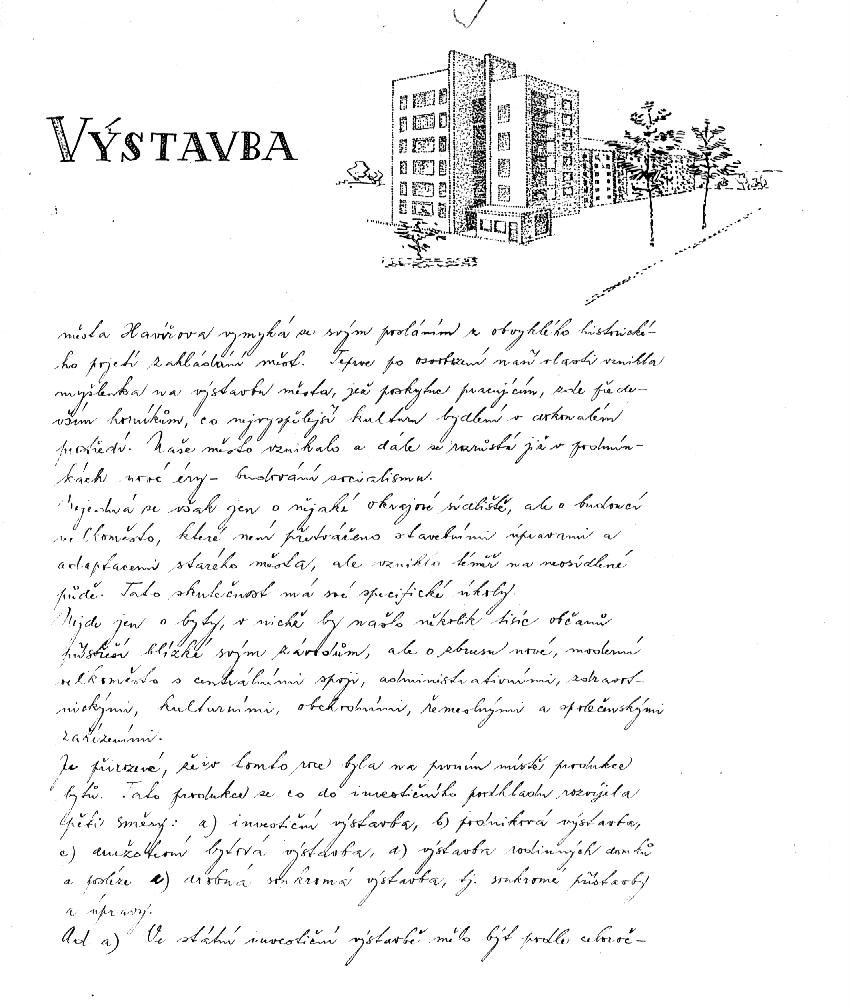 VÝSTAVBA
města Havířova vymyká se svým posláním z obvyklého historické-
ho pojetí zakládání měst. Teprve po osvobození naší vlasti vznikla
myšlenka na výstavbu města, jež poskytne pracujícím, zde přede-
vším horníkům, co nejvyspělejší kulturu bydlení v dokonalém
prostředí. Naše město vznikalo a dále se rozrůstá již v podmín-
kách nové éry - budování socialismu.
Nejedná se však jen o nějaké okrajové sídliště, ale o budoucí
velkoměsto, které není přetvářeno stavebními úpravami a
adaptacemi starého města, ale vzniklo téměř na neosídlené
půdě. Tato skutečnost má své specifické úkoly.
Nejde jen o byty, v nichž by našlo několik tisíc občanů
přístřeší blízké svým závodům, ale o zbrusu nové, moderní
velkoměsto s centrálními spoji, administrativními, zdravot-
nickými, kulturními, obchodními, řemeslnými a společenskými
zařízeními.
Je přirozené, že i v tomto roce byla na prvním místě produkce
bytů. Tato produkce se co do investičního podkladu rozvíjela
pěti směry: a) investiční výstavba, b) podniková výstavba,
c) družstevní bytová výstavba, d) výstavba rodinných domků
a posléze e) drobná soukromá výstavba, tj. soukromé přístavby
a úpravy.
Ad a) Ve státní investiční výstavbě mělo být podle celoroč-